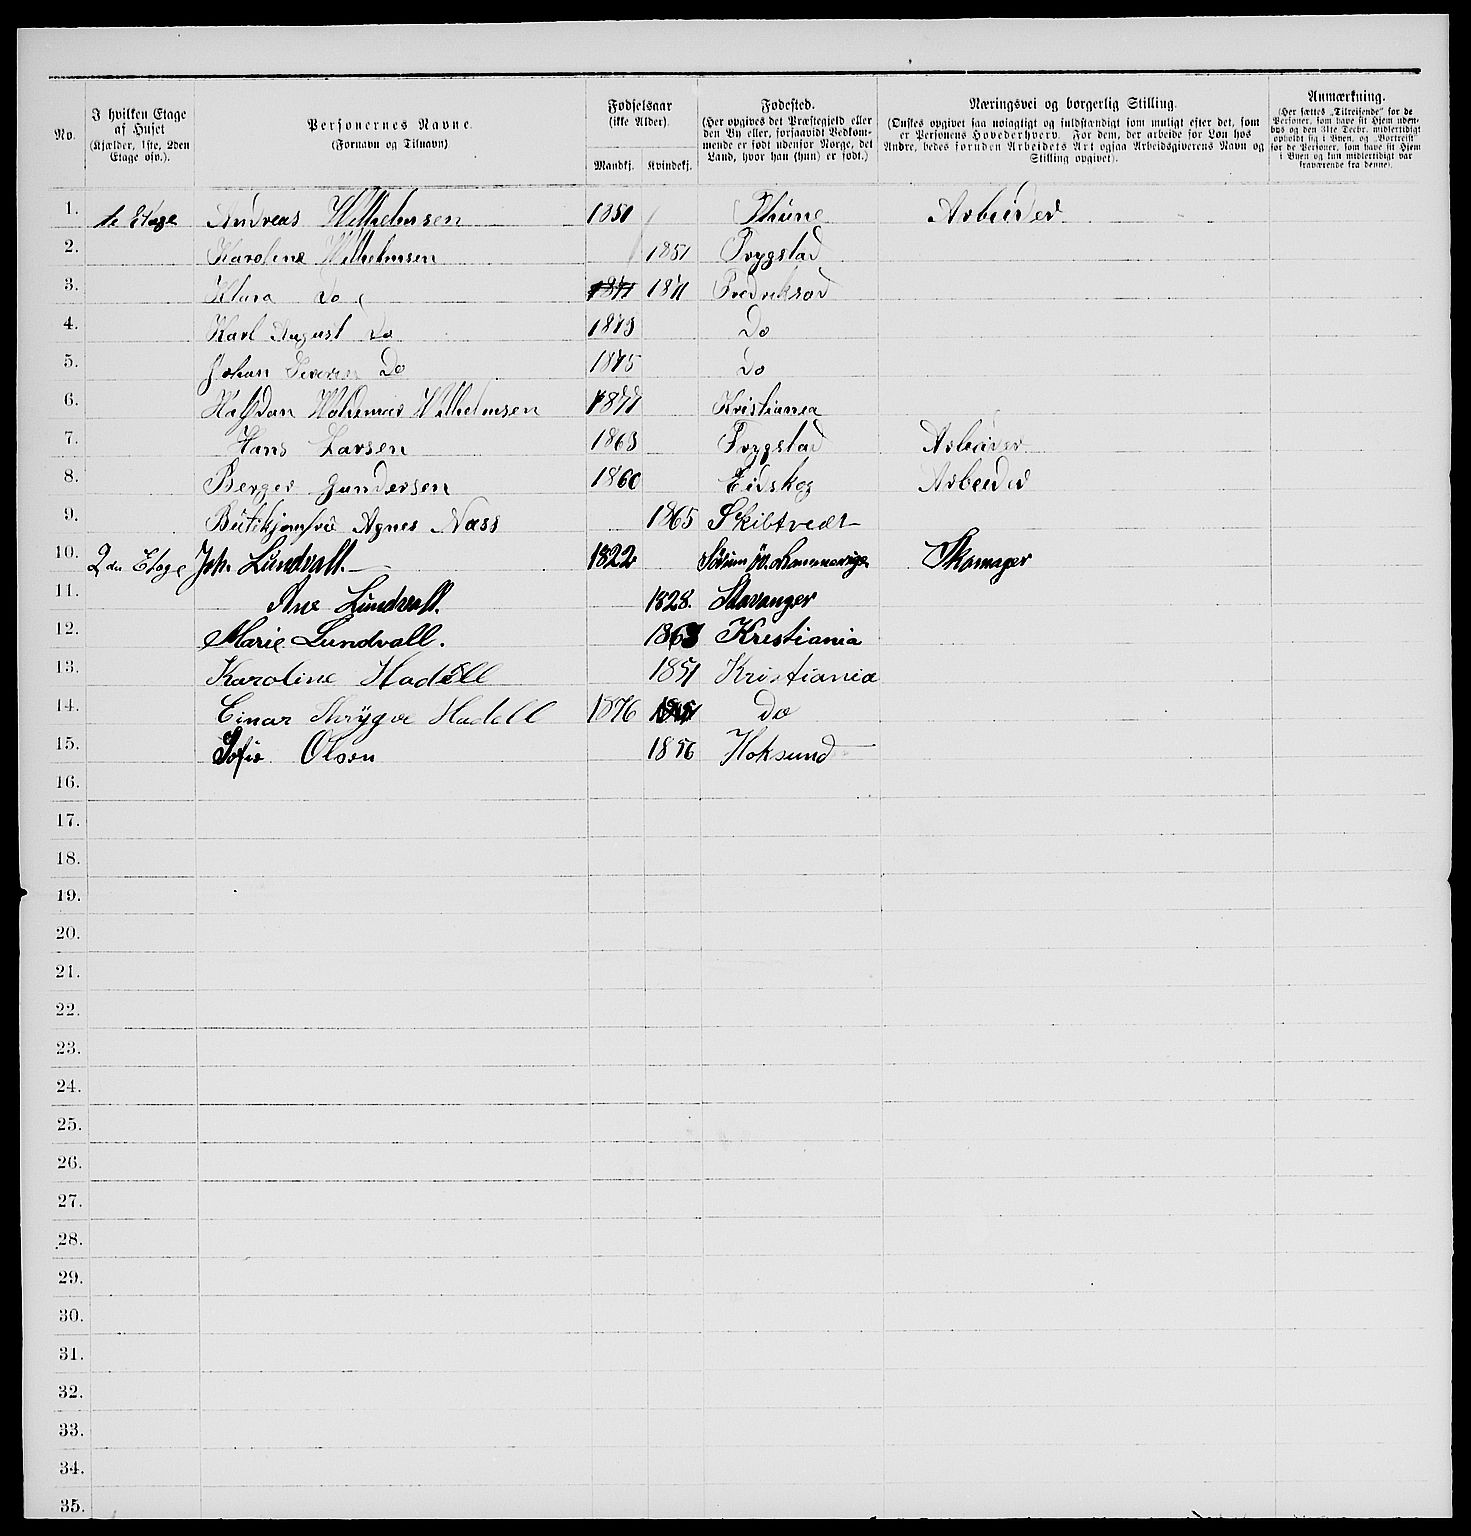 No.
I hvilken Etage af Huset (Kjælder, 1ste, 2den Etage osv.).
Personernes Navne. (Fornavn og Tilnavn)
Fødselsaar (ikke Alder). Mandkj. Kvindekj.
Fødested. (Her opgives det Præstegjeld eller den By eller, forsaavidt Vedkommende er født udenfor Norge, det Land, hvor han (hun) er født.)
Næringsvei og borgerlig Stilling. (Ønskes opgivet saa nøiagtigt og fuldstændigt som muligt efter det, som er Personens Hovederhverv. For dem, der arbeide for Løn hos Andre, bedes foruden Arbeidets Art ogsaa Arbeidsgiverens Navn og Stilling opgivet).
Anmærkning. (Her sættes „Tilreisende" for de Personer, som have sit Hjem udenbys og den 31te Decbr. midlertidigt opholdt sig i Byen, og „Bortreist" for de Personer, som have sit Hjem i Byen og kun midlertidigt var fraværende fra denne).
1. 1e Etage Andreas Wilhelmsen 1851 Thune Arbeider
2. Karoline Wilhelmsen 1851 Trygstad
3. Klara Do 1871 1871 Fredriksad
4. Karl August Do 1873 Do
5. Johan Severin Do 1875 Do
6. Halfdan Woldemar Wilhelmsen 1877 Kristiania
7. Hans Larsen 1863 Trygstad Arbeider
8. Berger Gundersen 1860 Eidskog Arbeider
9. Butikjomfru Agnes Næss 1865 Skibtvedt
10. 2den Etage Joh. Lundvall 1822 Skomager
11. Ane Lundvall. 1828. Stavanger
12. Marie Lundvall. 1863 Kristiania
13. Karoline Hadell 1851 Kristiania
14. Einar Thrygve Hadell 1876 Do
15. Sofie Olsen 1856 Hoksund
16.
17.
18.
19.
20.
21.
22.
23.
24.
25.
26.
27.
28.
29.
30.
31.
32.
33.
34.
35.